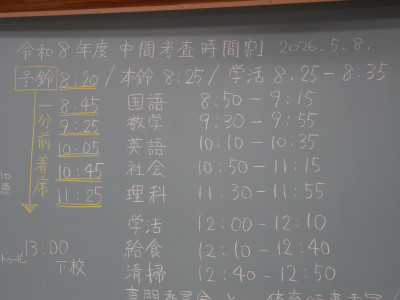 令和8年度 中間考査時間割 2026.5.8.
予鈴 8:20 / 本鈴 8:25 / 学活 8:25-8:35
一分前着席
8:45 国語 8:50-9:15
9:25 数学 9:30-9:55
10:05 英語 10:10-10:35
10:45 社会 10:50-11:15
11:25 理科 11:30-11:55
学活 12:00-12:10
給食 12:10-12:40
清掃 12:40-12:50
13:00
下校
専門委員会